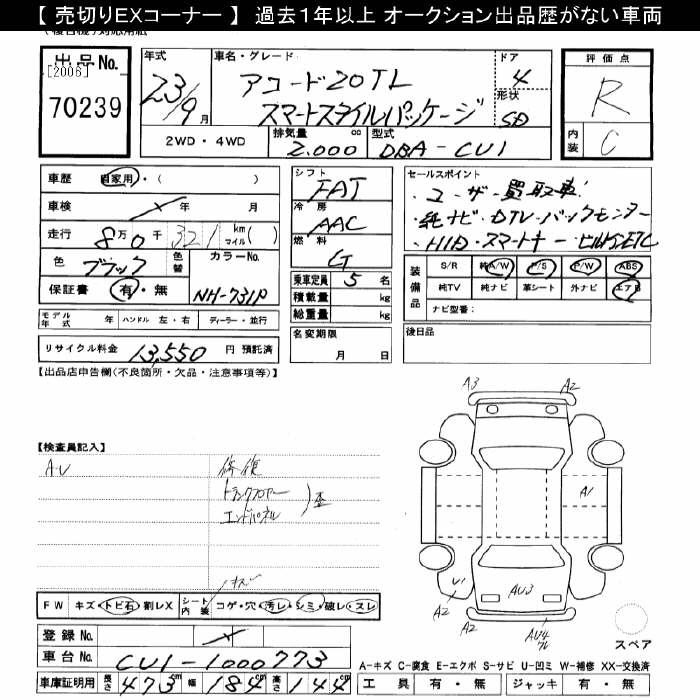 【 売切りEXコーナー 】 過去1年以上 オークション出品歴がない車両
出品No.
[2006]
70239
年式
23/9月
車名・グレード
アコード20TL
スマートスタイルパッケージ
ドア
4
形状
SD
評価点
R
内装
C
2WD・4WD
排気量
2.000 cc
型式
DBA-CU1
車歴 自家用・( )
車検 年 月
走行 8万0千321 km マイル( )
色 ブラック 色替 カラーNo.
保証書 有・無 NH-731P
モデル年式 年 ハンドル 左・右 ディーラー・並行
リサイクル料金 13,550 円 預託済
シフト
FAT
冷房
AAC
燃料
G
乗車定員 5 名
積載量 kg
総重量 kg
名変期限
月 日
セールスポイント
・ユーザー買取車!
・純ナビ・DTV・バックモニター
・HID・スマートキー・ビルトインETC
装備品
S/R 純A/W P/S P/W ABS
純TV 純ナビ 革シート 外ナビ エアB
ナビ型番:
後日品
【出品店申告欄(不良箇所・欠品・注意事項等)】
【検査員記入】
A・U
修復
トランクフロアー
エンドパネル
歪
キズ
FW キズ・トビ石・割レX シート内装 コゲ・穴・汚レ・シミ・破レ・スレ
登録No.
車台No. CU1-1000773
車庫証明用 長さ 473 cm 幅 184 cm 高さ 144 cm
A3
A2
A1
U1
A2
AU3
A2
AU4
ワレ
スペア
A-キズ C-腐食 E-エクボ S-サビ U-凹ミ W-補修 XX-交換済
工具 有・無 ジャッキ 有・無